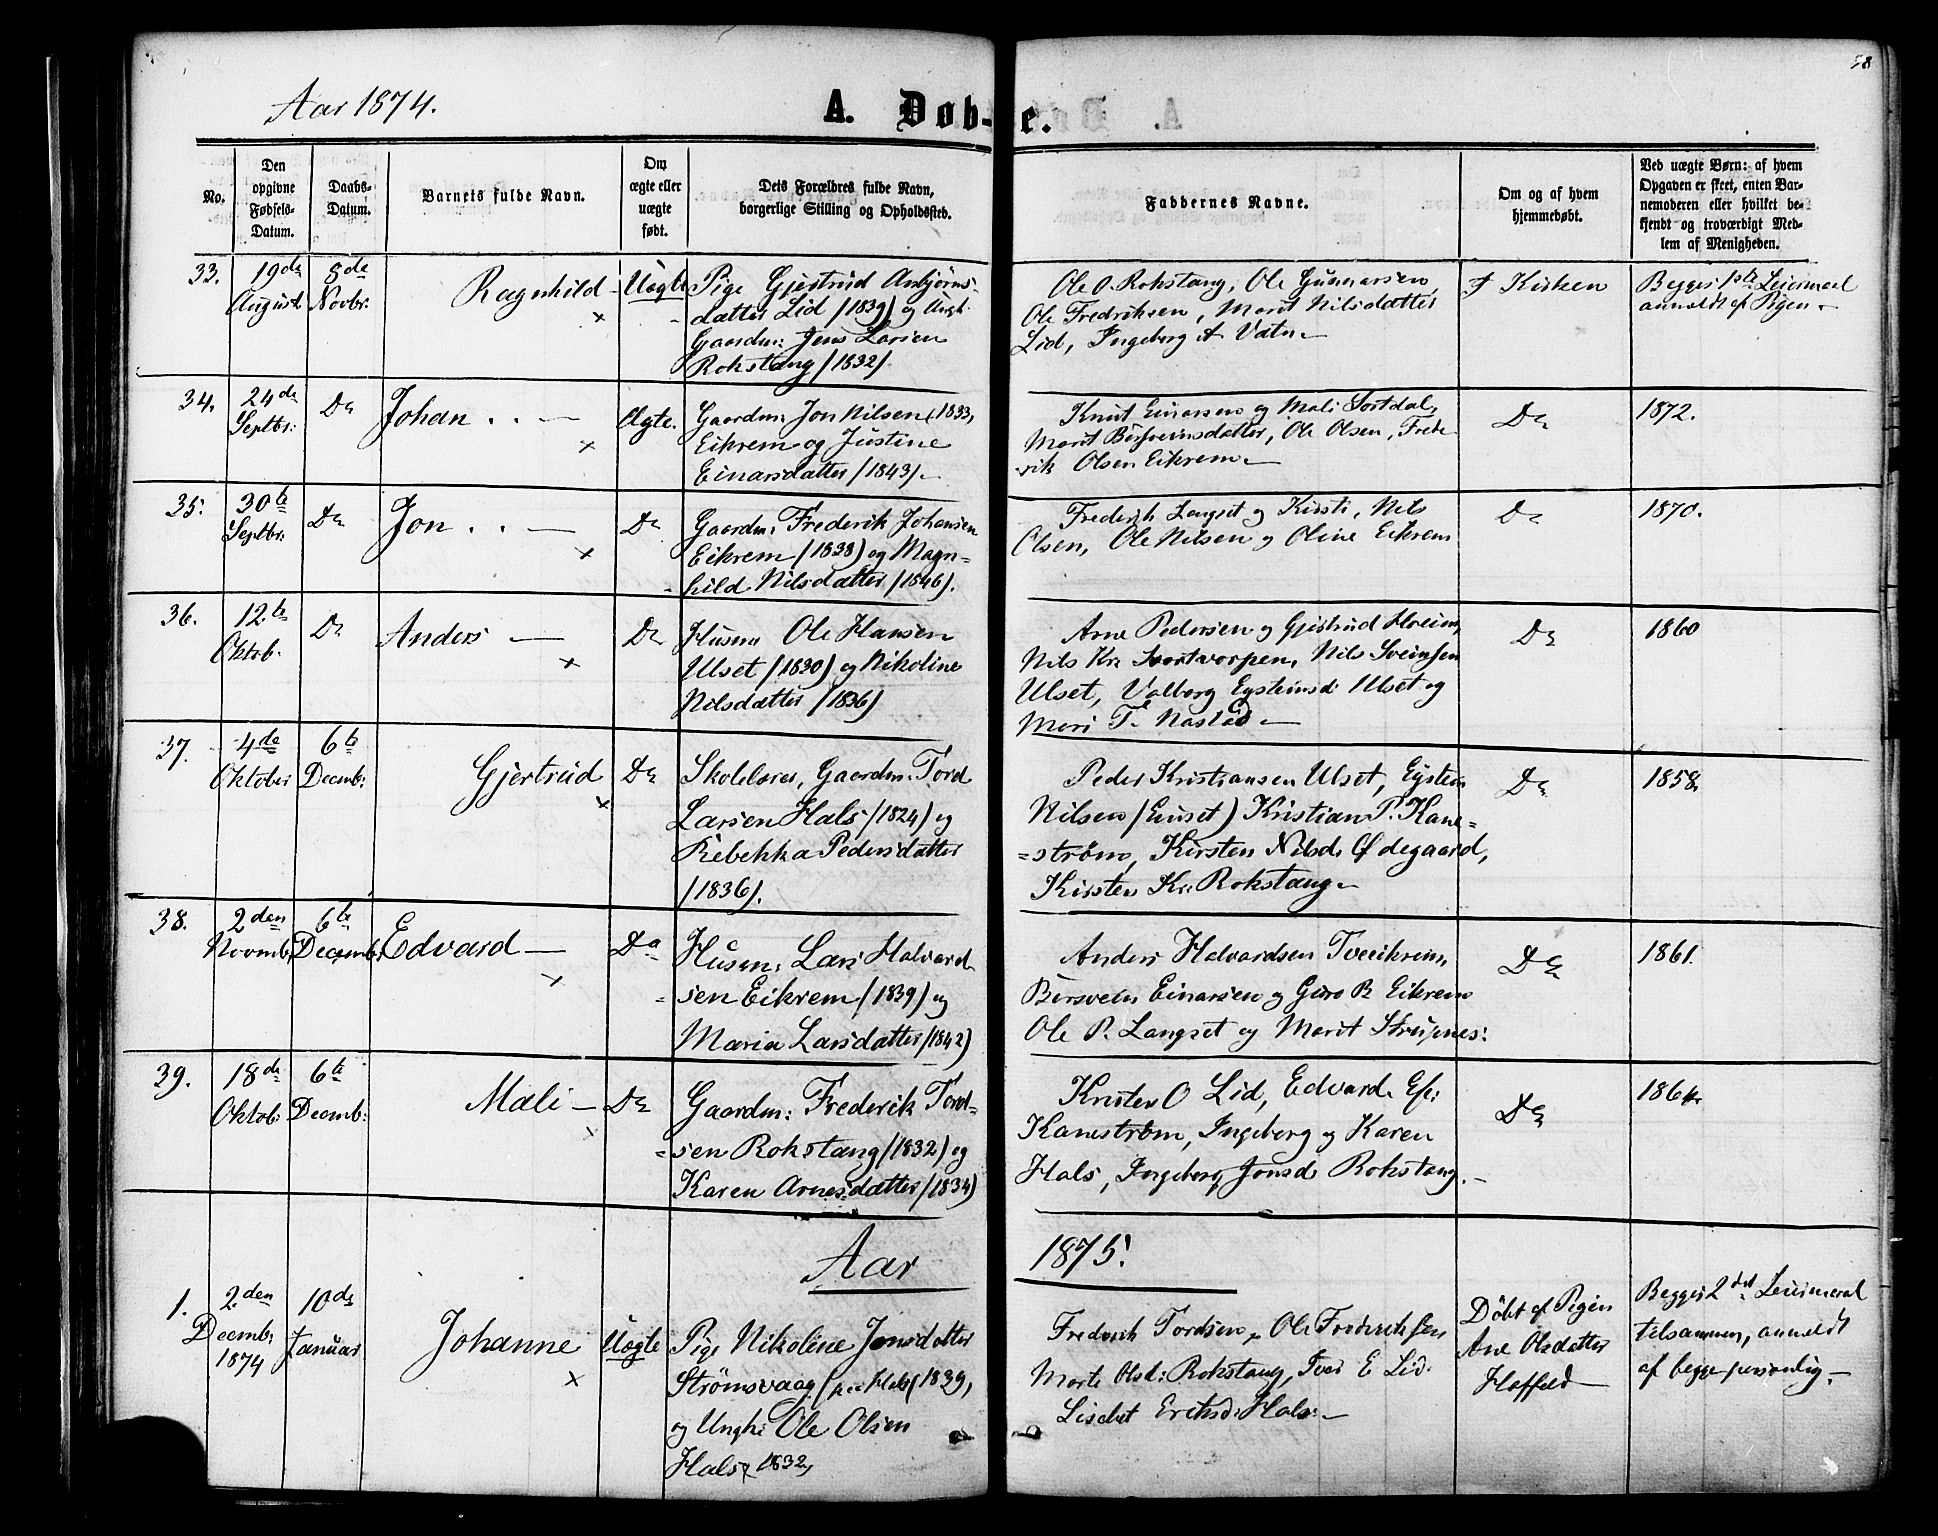 58
Aar 1874.
A. Døb-
e.
No.
Den opgivne Fødsels-Datum.
Daabs-Datum.
Barnets fulde Navn.
Om ægte eller uægte født.
Dets Forældres fulde Navn, borgerlige Stilling og Opholdssted.
Faddernes Navne.
Om og af hvem hjemmedøbt.
Ved uægte Børn: af hvem Opgaven er skeet, enten Barnemoderen eller hvilket bekjendt og troværdigt Medlem af Menigheden.
33. 19de August 8de Novbr. Ragnhild Uægte
Pige Gjertrud Asbjørns-
datter Lid (1839) og Ungk.
Gaardm: Jens Larsen
Rokstang (1832)
Ole O. Rokstang, Ole Gunnarsen,
Ole Fredriksen, Marit Nilsdatter
Lid, Ingeborg A Vatn
I Kirken
Begges 1ste Leiermaal
anmeldt af Pigen
34. 24de Septbr: Do Johan Ægte.
Gaardm: Jon Nilsen (1833)
Eikrem og Justine
Einarsdatter (1843).
Knut Einarsen og Mali Sortdal,
Marit Bersveinsdatter, Ole Olsen, Frede-
rik Olsen Eikrem
Do
1872.
35. 30te Septbr: Do Jon Do
Gaardm: Frederik Johansen
Eikrem (1838) og Magn-
hild Nilsdatter (1846).
Frederik Langset og Kirsti, Nils
Olsen, Ole Nilsen og Oline Eikrem
Do
1870.
36. 12te Oktob. Do Anders Do
Husm Ole Hansen
Ulset (1830) og Nikoline
Nilsdatter (1836)
Arne Pedersen og Gjertrud Hreim,
Nils Kr. Svortvorpen, Nils Sveinsen
Ulset, Valborg Eysteinsd Ulset og
Mari T. Nastad
Do
1860
37. 4de Oktober 6te Decemb: Gjertrud Do
Skolelærer, Gaardm: Tord
Larsen Hals (1824) og
Rebekka Pedersdatter
(1836).
Peder Kristiansen Ulset, Eystein
Nilsen (Einset) Kristian P. Kane-
strøm, Kirsten Nilsd. Ødegaard,
Kirsten Kr. Rokstang
Do
1858.
38. 2den Novmb: 6te Decemb: Edvard Do
Husm: Lars Halvard-
sen Eikrem (1839) og
Maria Larsdatter (1842)
Anders Halvardsen Tveeikrem,
Bersvein Einarsen og Guro B. Eikrem
Ole P. Langset og Marit Strupnes:
Do
1861.
39. 18de Oktob: 6te Decemb: Mali Do
Gaardm: Frederik Tord-
sen Rokstang (1832) og
Karen Arnesdatter (1834)
Kristen O Lid, Edvard Ef:
Kanestrøm, Ingeborg og Karen
Hals, Ingeborg Jonsd. Rokstang.
Do
1864
Aar 1875.
1. 2den Decemb: 1874 10de Januar Johanne Uægte
Pige Nikoline Jonsdatter
Strømsvaag (paa Hals (1839,
og Ungk: Ole Olsen
Hals (1832)
Frederik Tordsen, Ole Frederiksen
Marte Olsd: Rokstang, Iver E Lid.
Lisebet Eriksd: Hals:
Döbt af Pigen
Ane Olsdatter
Hoffeld
Begges 2det Leiermaal
tilsammen, anmeldt
af begge personlig.